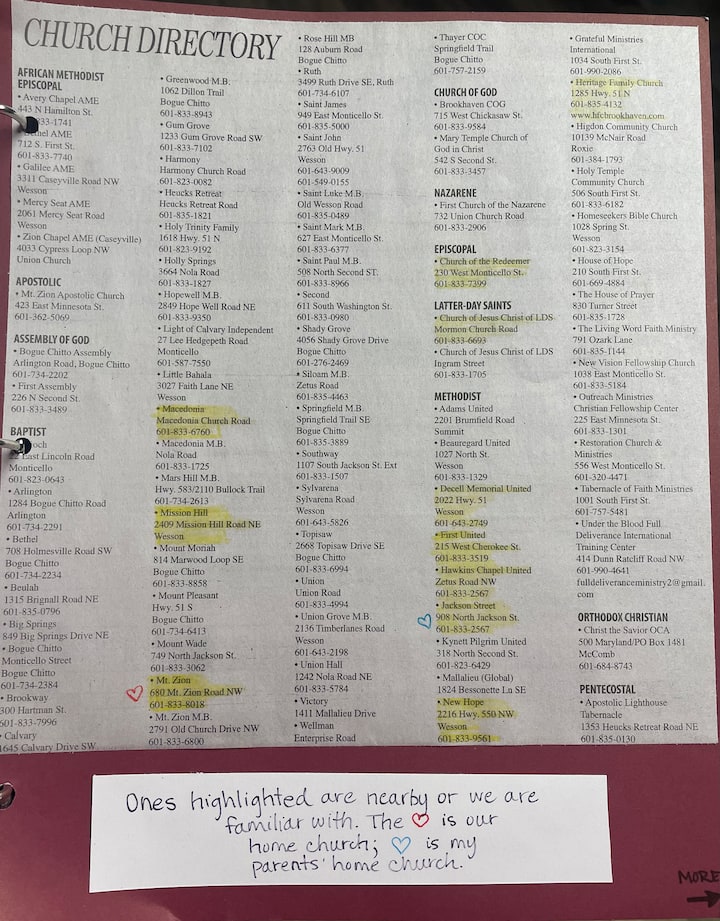 CHURCH DIRECTORY
AFRICAN METHODIST
EPISCOPAL
• Avery Chapel AME
443 N Hamilton St.
833-1741
AME
712 S. First St.
601-833-7740
• Galilee AME
3311 Caseyville Road NW
Wesson
• Mercy Seat AME
2061 Mercy Seat Road
Wesson
• Zion Chapel AME (Caseyville)
4033 Cypress Loop NW
Union Church
APOSTOLIC
• Mt. Zion Apostolic Church
423 East Minnesota St.
601-362-5069
ASSEMBLY OF GOD
• Bogue Chitto Assembly
Arlington Road, Bogue Chitto
601-734-2202
• First Assembly
226 N Second St.
601-833-3489
BAPTIST
East Lincoln Road
Monticello
601-823-0643
• Arlington
1284 Bogue Chitto Road
Arlington
601-734-2291
• Bethel
708 Holmesville Road SW
Bogue Chitto
601-734-2234
• Beulah
1315 Brignall Road NE
601-835-0796
• Big Springs
849 Big Springs Drive NE
• Bogue Chitto
Monticello Street
Bogue Chitto
601-734-2384
• Brookway
300 Hartman St.
601-833-7996
• Calvary
1645 Calvary Drive SW
• Greenwood M.B.
1062 Dillon Trail
Bogue Chitto
601-833-8943
• Gum Grove
1233 Gum Grove Road SW
601-833-7102
• Harmony
Harmony Church Road
601-823-0082
• Heucks Retreat
Heucks Retreat Road
601-835-1821
• Holy Trinity Family
1618 Hwy. 51 N
601-823-9192
• Holly Springs
3664 Nola Road
601-833-1827
• Hopewell M.B.
2849 Hope Well Road NE
601-833-9350
• Light of Calvary Independent
27 Lee Hedgepeth Road
Monticello
601-587-7550
• Little Bahala
3027 Faith Lane NE
Wesson
• Macedonia
Macedonia Church Road
601-833-6760
• Macedonia M.B.
Nola Road
601-833-1725
• Mars Hill M.B.
Hwy. 583/2110 Bullock Trail
601-734-2613
• Mission Hill
2409 Mission Hill Road NE
Wesson
• Mount Moriah
814 Marwood Loop SE
Bogue Chitto
601-833-8858
• Mount Pleasant
Hwy. 51 S
Bogue Chitto
601-734-6413
• Mount Wade
749 North Jackson St.
601-833-3062
• Mt. Zion
680 Mt. Zion Road NW
601-833-8018
• Mt. Zion M.B.
2791 Old Church Drive NW
601-833-6800
• Rose Hill MB
128 Auburn Road
Bogue Chitto
• Ruth
3499 Ruth Drive SE, Ruth
601-734-6107
• Saint James
949 East Monticello St.
601-835-5000
• Saint John
2763 Old Hwy. 51
Wesson
601-643-9009
601-549-0155
• Saint Luke M.B.
Old Wesson Road
601-835-0489
• Saint Mark M.B.
627 East Monticello St.
601-833-6377
• Saint Paul M.B.
508 North Second ST.
601-833-8966
• Second
611 South Washington St.
601-833-0980
• Shady Grove
4056 Shady Grove Drive
Bogue Chitto
601-276-2469
• Siloam M.B.
Zetus Road
601-835-4463
• Springfield M.B.
Springfield Trail SE
Bogue Chitto
601-835-3889
• Southway
1107 South Jackson St. Ext
601-833-1507
• Sylvarena
Sylvarena Road
Wesson
601-643-5826
• Topisaw
2668 Topisaw Drive SE
Bogue Chitto
601-833-6994
• Union
Union Road
601-833-4994
• Union Grove M.B.
2136 Timberlanes Road
Wesson
601-643-2198
• Union Hall
1242 Nola Road NE
601-833-5784
• Victory
1411 Mallalieu Drive
• Wellman
Enterprise Road
• Thayer COC
Springfield Trail
Bogue Chitto
601-757-2159
CHURCH OF GOD
• Brookhaven COG
715 West Chickasaw St.
601-833-9584
• Mary Temple Church of
God in Christ
542 S Second St.
601-833-3457
NAZARENE
• First Church of the Nazarene
732 Union Church Road
601-833-2906
EPISCOPAL
• Church of the Redeemer
230 West Monticello St.
601-833-7399
LATTER-DAY SAINTS
• Church of Jesus Christ of LDS
Mormon Church Road
601-833-6693
• Church of Jesus Christ of LDS
Ingram Street
601-833-1705
METHODIST
• Adams United
2201 Brumfield Road
Summit
• Beauregard United
1027 North St.
Wesson
601-833-1329
• Decell Memorial United
2022 Hwy. 51
Wesson
601-643-2749
• First United
215 West Cherokee St.
601-833-3519
• Hawkins Chapel United
Zetus Road NW
601-833-2567
• Jackson Street
908 North Jackson St.
601-833-2567
• Kynett Pilgrim United
318 North Second St.
601-823-6429
• Mallalieu (Global)
1824 Bessonette Ln SE
• New Hope
2216 Hwy. 550 NW
Wesson
601-833-9561
• Grateful Ministries
International
1034 South First St.
601-990-2086
• Heritage Family Church
1285 Hwy. 51 N
601-835-4132
www.hfcbrookhaven.com
• Higdon Community Church
10139 McNair Road
Roxie
601-384-1793
• Holy Temple
Community Church
506 South First St.
601-833-6182
• Homeseekers Bible Church
1028 Spring St.
Wesson
601-823-3154
• House of Hope
210 South First St.
601-669-4884
• The House of Prayer
830 Turner Street
601-835-1728
• The Living Word Faith Ministry
791 Ozark Lane
601-835-1144
• New Vision Fellowship Church
1038 East Monticello St.
601-833-5184
• Outreach Ministries
Christian Fellowship Center
225 East Minnesota St.
601-833-1301
• Restoration Church &
Ministries
556 West Monticello St.
601-320-4471
• Tabernacle of Faith Ministries
1001 South First St.
601-757-5481
• Under the Blood Full
Deliverance International
Training Center
414 Dunn Ratcliff Road NW
601-990-4641
fulldeliveranceministry2@gmail.
com
ORTHODOX CHRISTIAN
• Christ the Savior OCA
500 Maryland/PO Box 1481
McComb
601-684-8743
PENTECOSTAL
• Apostolic Lighthouse
Tabernacle
1353 Heucks Retreat Road NE
601-835-0130
Ones highlighted are nearby or we are
familiar with. The ♡ is our
home church; ♡ is my
parents' home church.
MORE
→